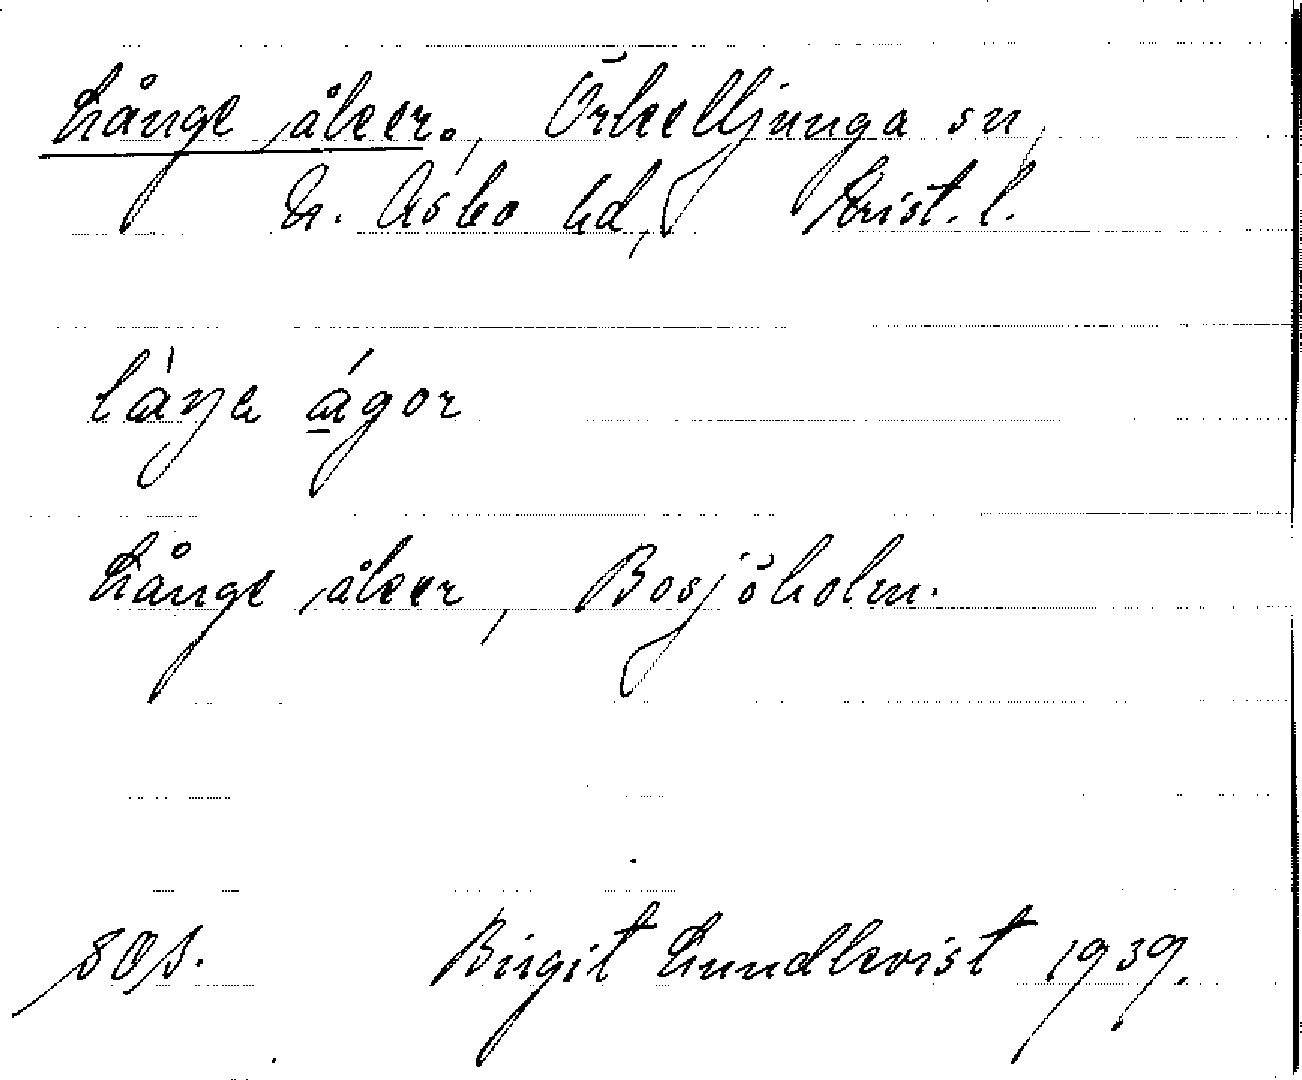 Långe åker., Örkelljunga sn,
N. Åsbo hd, Krist. l.
låŋa ágor
Långe åker, Bosjöholm.
sås. Birgit Lundkvist 1939.